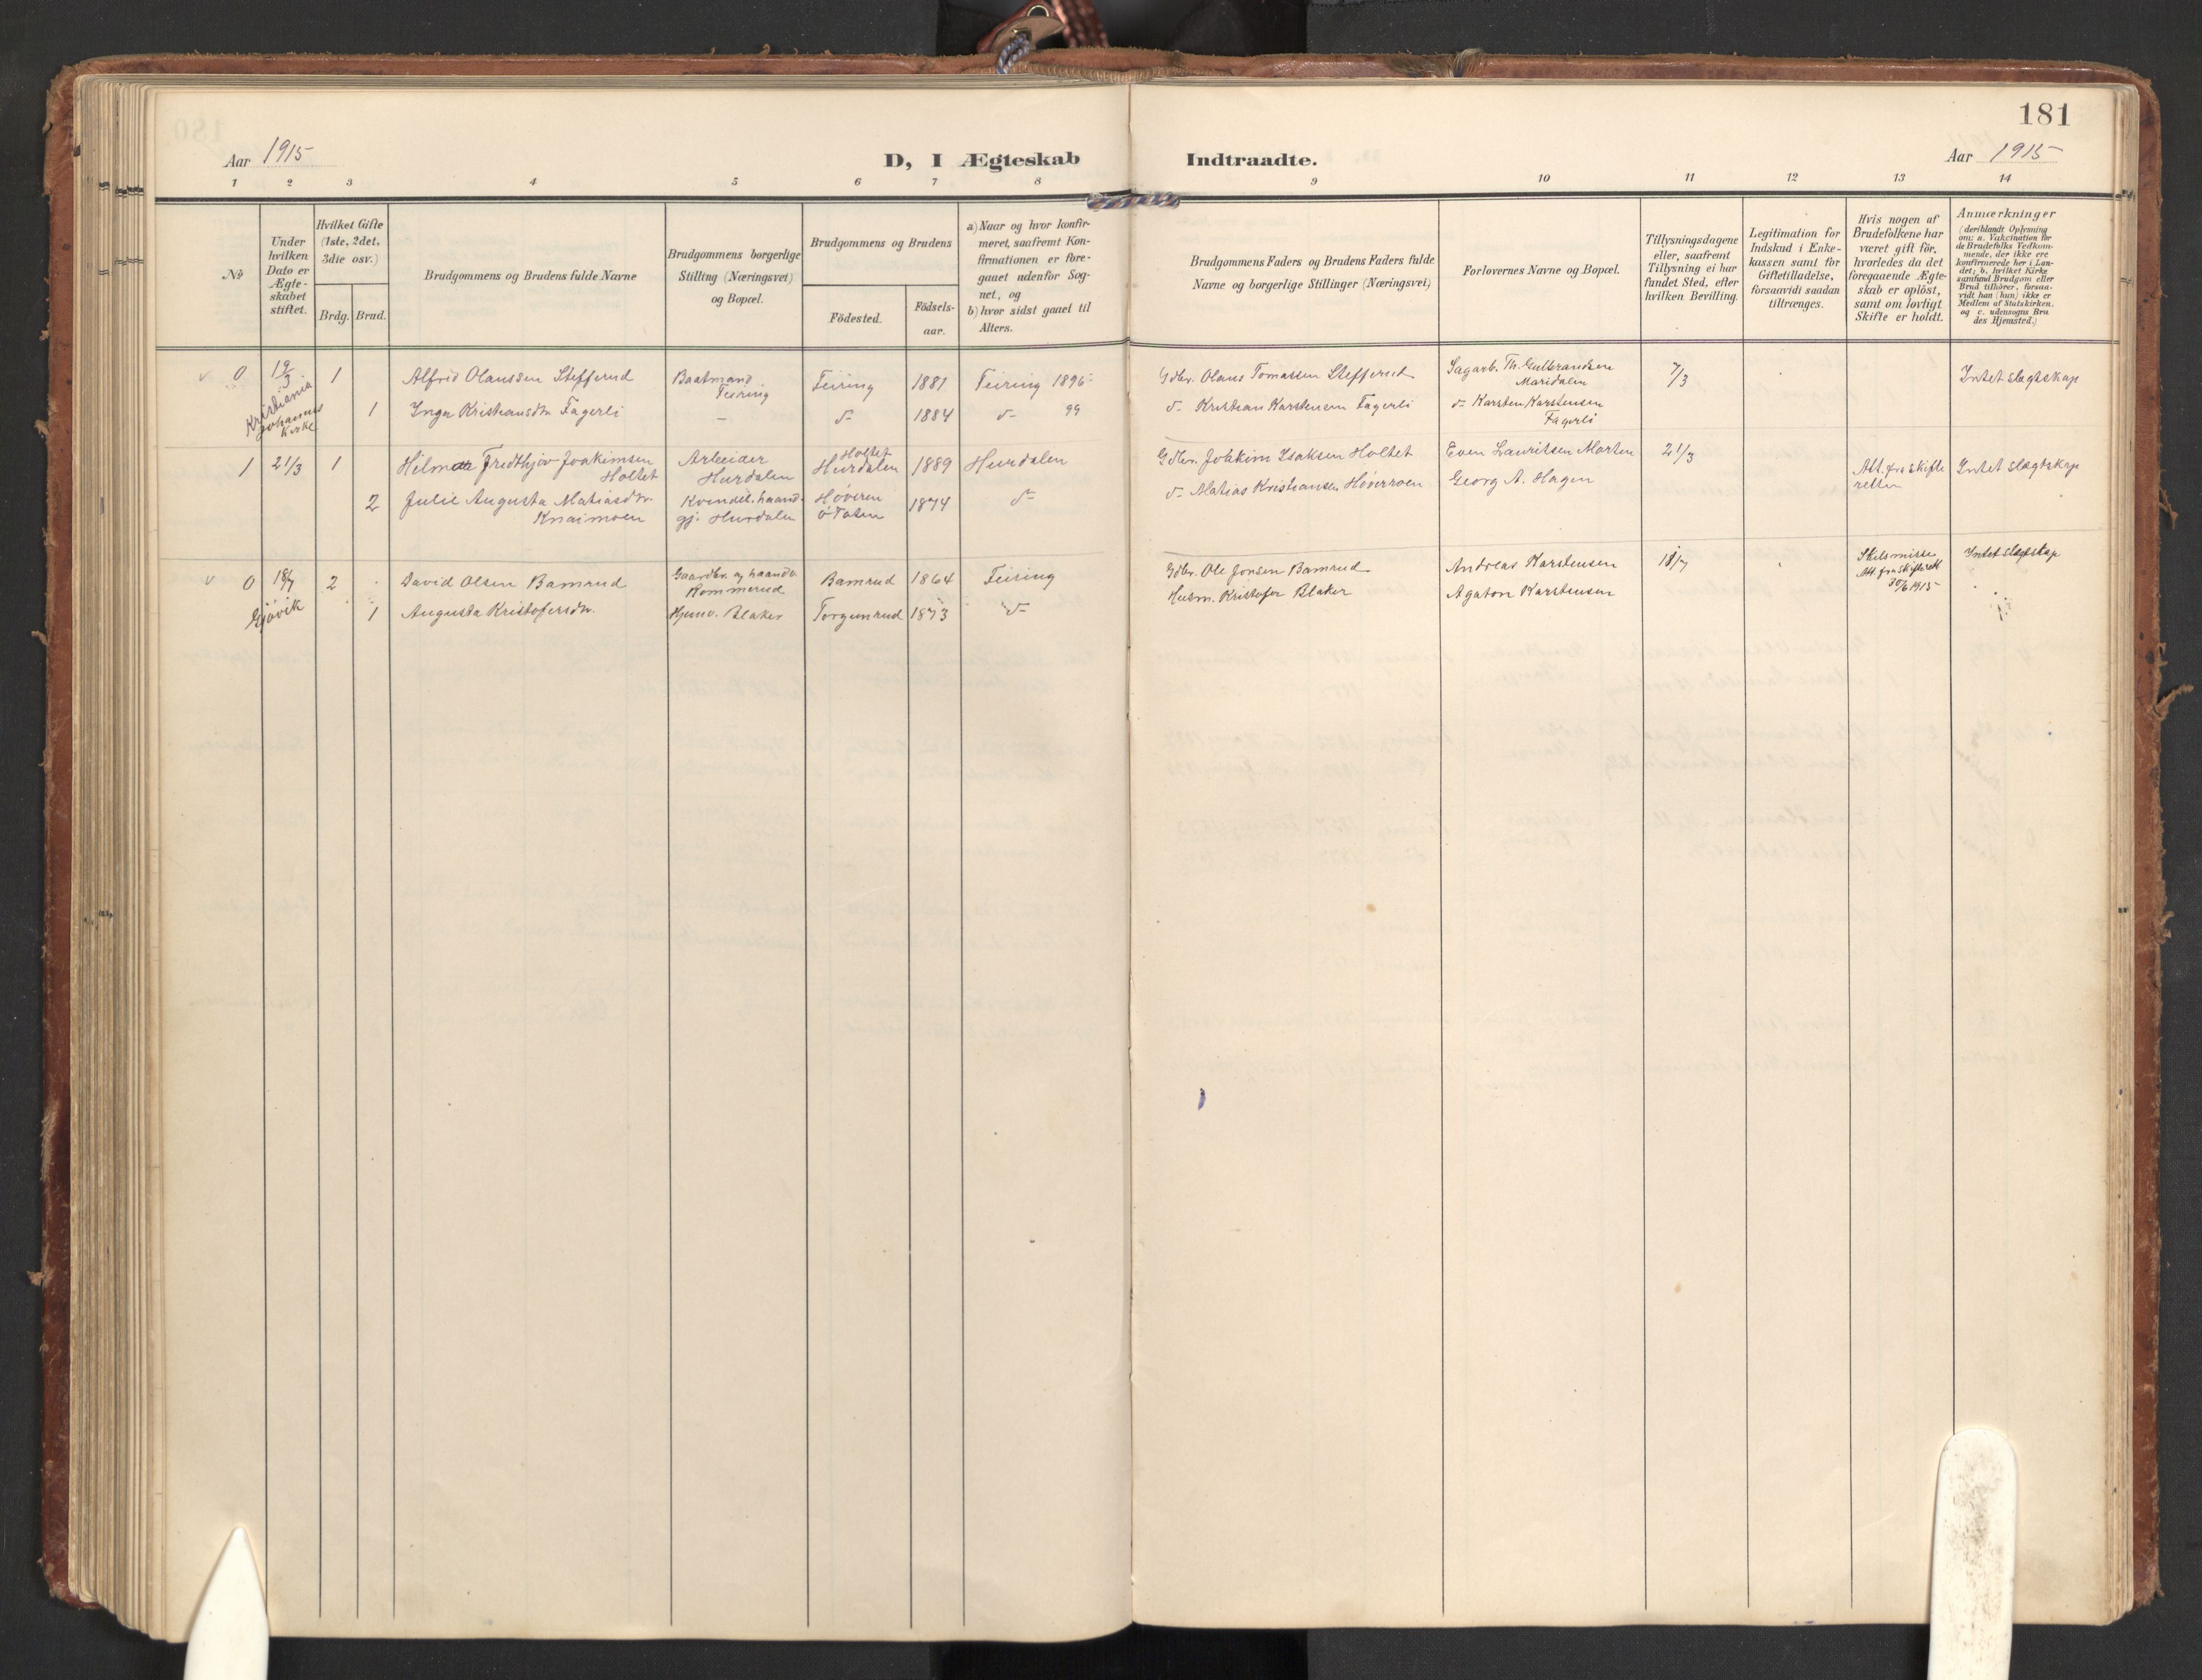 181
Aar 1915
D, I Ægteskab
Indtraadte.
Aar 1915
1 2 3 4 5 6 7 8 9 10 11 12 13 14
No
Under hvilken Dato er Ægte-skabet stiftet.
Hvilket Gifte (1ste, 2det, 3die osv.)
Brdg. Brud.
Brudgommens og Brudens fulde Navne
Brudgommens borgerlige Stilling (Næringsvei) og Bopæl.
Brudgommens og Brudens
Födested.
Födsels-aar.
a) Naar og hvor konfir-
meret, saafremt Kon-
firmationen er fore-
gaaet udenfor Sog-
net, og
b) hvor sidst gaaet til
Alters.
Brudgommens Faders og Brudens Faders fulde
Navne og borgerlige Stillinger (Næringsvei)
Forlovernes Navne og Bopæl.
Tillysningsdagene
eller, saafremt
Tillysning ei har
fundet Sted, efter
hvilken Bevilling.
Legitimation for
Indskud i Enke-
kassen samt for
Giftetilladelse,
forsaavidt saadan
tiltrænges.
Hvis nogen af
Brudefolkene har
været gift för,
hvorledes da det
foregaaende Ægte-
skab er oplöst,
samt om lovligt
Skifte er holdt.
Anmærkninger
(deriblandt Oplysning
om: a. Vakcination for
de Brudefolks Vedkom-
mende, der ikke ere
konfirmerede her i Lan-
det; b. hvilket Kirke
samfund Brudgom eller
Brud tilhörer, forsaa-
vidt han (hun) ikke er
Medlem af Statskirken,
og c. udensogns Bru
des Hjemsted.)
0 1 Alfred Olaussen Stefferud Baatmand Feiring Feiring 1881 Feiring 1896 Gdbr. Olaus Tomassen Stefferud Sagarb. Th. Gulbrandsen Maridalen 7/3 Intet slegtskap
Kristiania Johannes Kirke
1 Inga Kristiansdtr Fagerli — d- 1884 d- 99 d- Kristian Karstensen Fagerli d- Karsten Karstensen Fagerli
1 21/3 1 Hilmar Fredthjov Joakimsen Holtet Arbeider Hurdalen Holtet Hurdalen 1889 Hurdalen Gdbr. Joakim Isaksen Holtet Even Lauritsen Morten 21/3 Att. fra skifteretten Intet slegtskap
2 Julie Augusta Matiasdtr. Knaimoen Kvindel. haandgj. Hurdalen Høveren Ö Toten 1874 d- d- Matias Kristiansen Høverroen Georg A. Hagen
0 18/7 2 David Olsen Bamrud Gaardbr. og haandv. Rommerud Bamrud 1864 Feiring Gdbr. Ole Jonsen Bamrud Andreas Karstensen 18/7 Skilsmisse Att. fra skifteret 30/6 1915 Intet slegtskap
Gjøvik
1 Augusta Kristofersdtr. Hjemv. Blaker Torgunrud 1873 d- Husm. Kristofer Blaker Agaton Karstensen